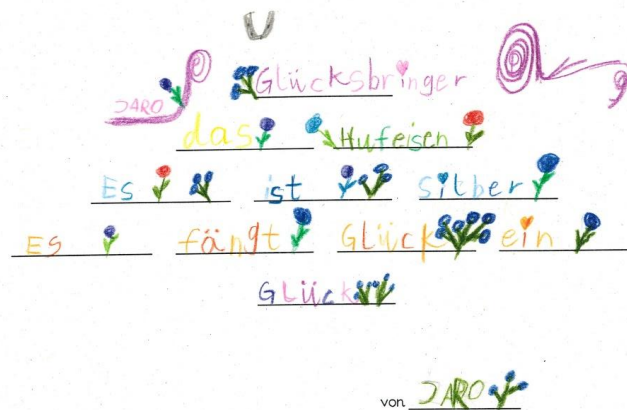 Glücksbringer
JARO
das Hufeisen
Es ist silber
Es fängt Glück ein
Glück
von JARO